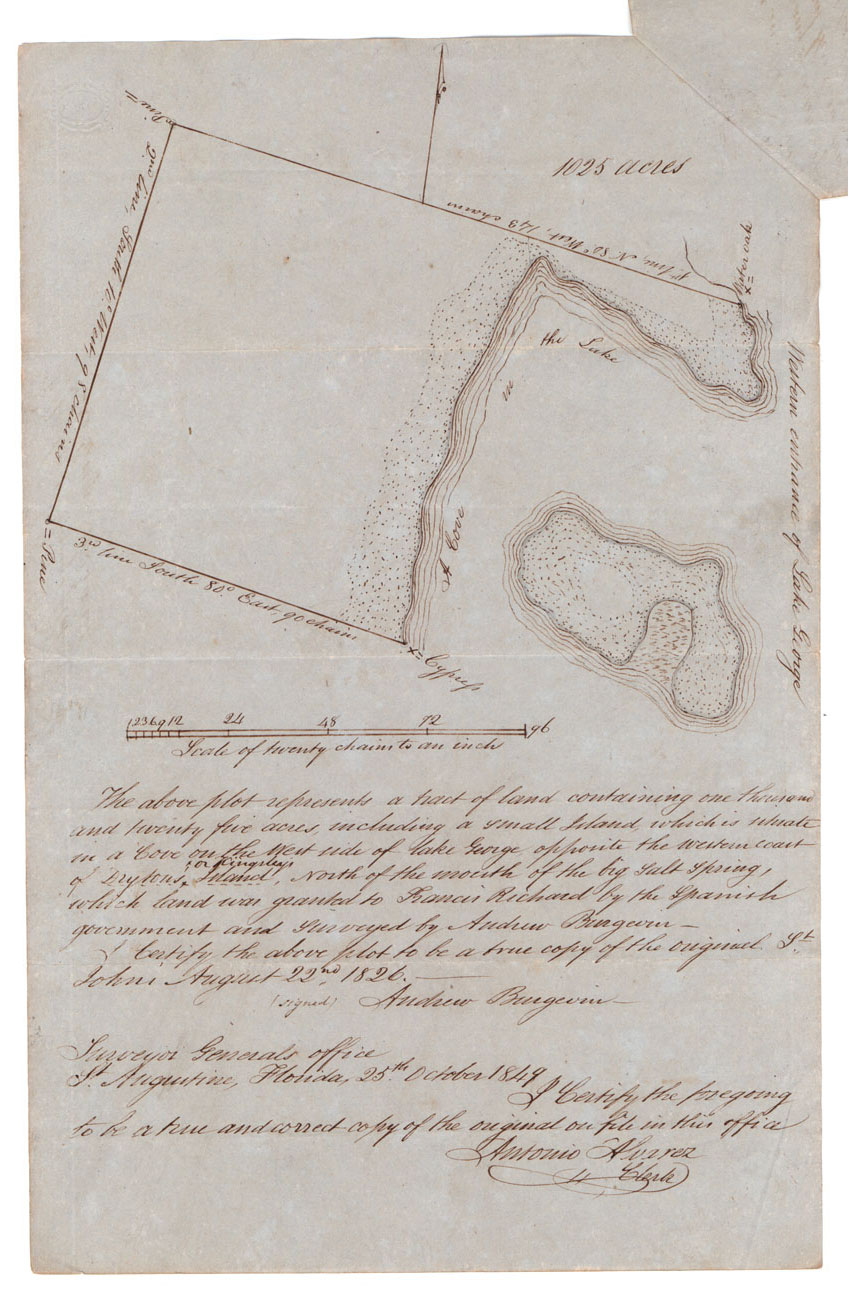 1025 acres
= Pine
1st line, N 80° West, 143 chains
Water oak
= x
2nd line, South 10° West, 98 chains
the Lake
in
A Cove
Western entrance of Lake George
= Pine
3rd line South 80° East, 90 chains
x = Cypress
1 2 3 6 9 12 24 48 72 96
Scale of twenty chains to an inch
The above plot represents a tract of land containing one thousand
and twenty five acres, including a small Island, which is situate
in a Cove on the West side of Lake George opposite the western coast
of Drytons, or Kingsley's Island, North of the mouth of the big Salt Spring,
which land was granted to Francis Richard by the Spanish
government and surveyed by Andrew Burgevin —
I Certify the above plot to be a true copy of the original St.
Johns August 22nd, 1826. —
(signed) Andrew Burgevin —
Surveyor Generals office
St. Augustine, Florida, 25th October 1849
I Certify the foregoing
to be a true and correct copy of the original on file in this office
Antonio Alvarez
Clerk